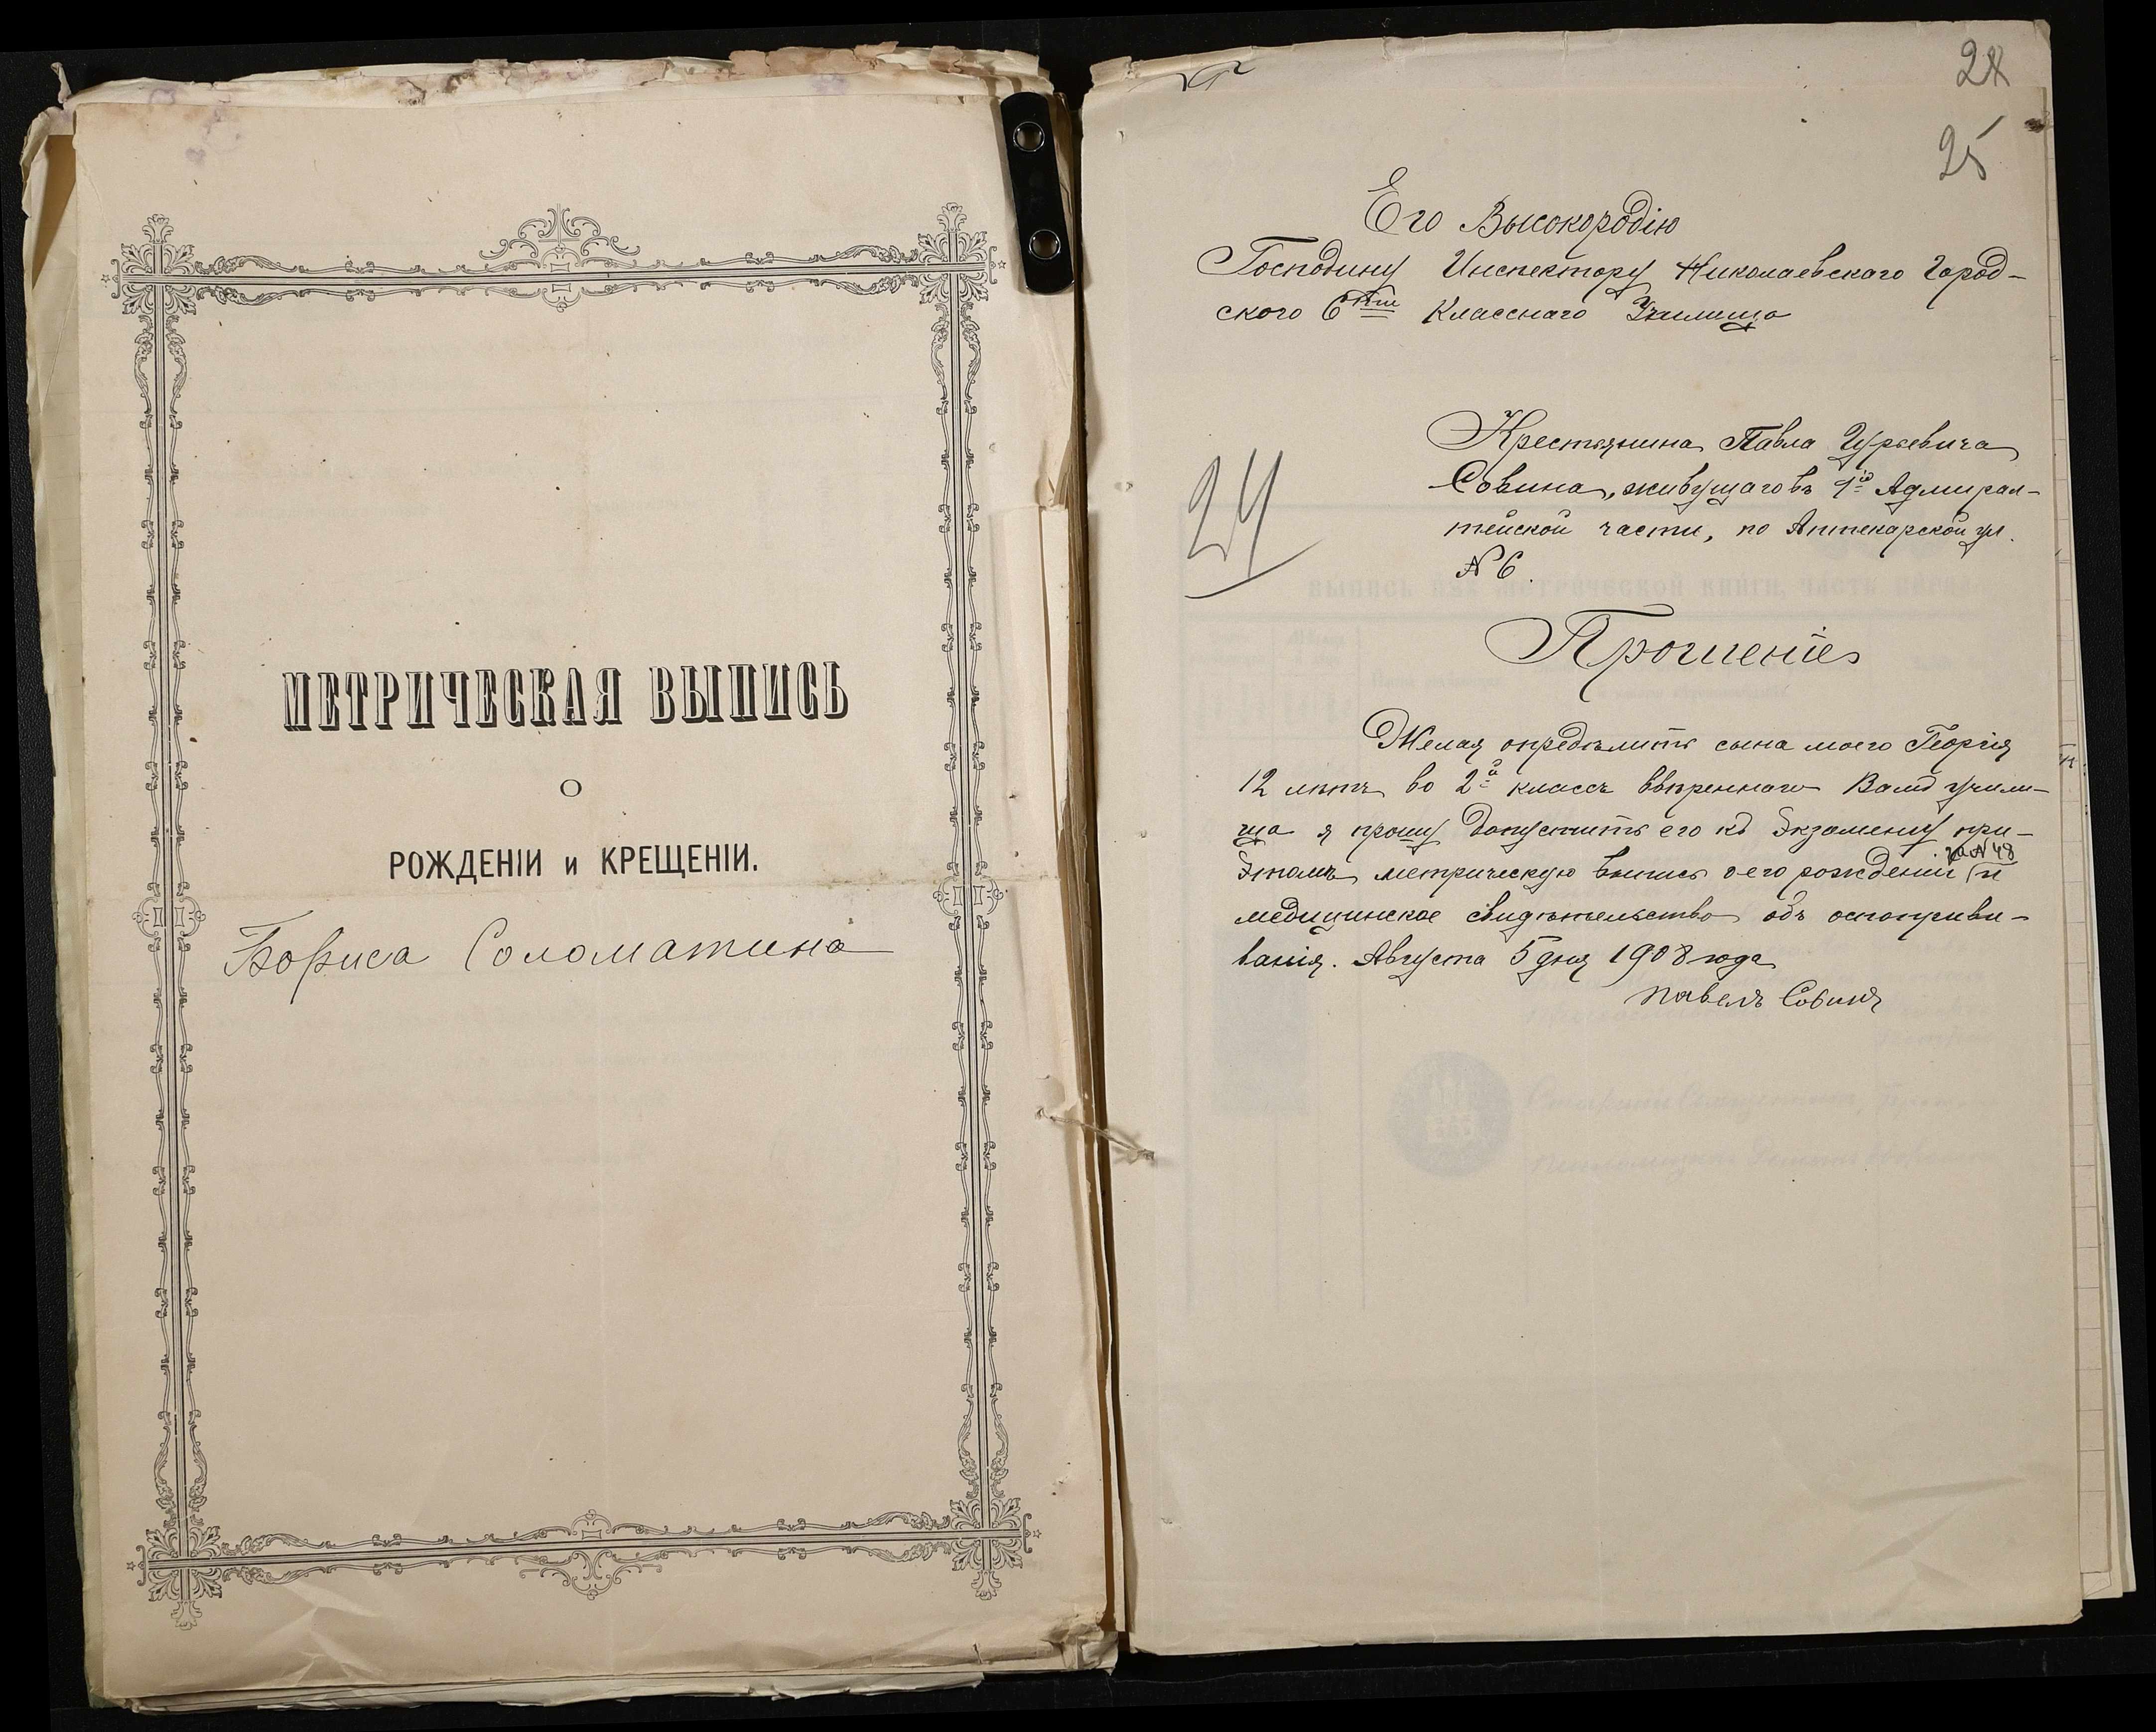 МЕТРИЧЕСКАЯ ВЫПИСЬ
О
РОЖДЕНІИ и КРЕЩЕНІИ.
Бориса Соломатина
24
25
Его Высокородію
Господину Инспектору Николаевского Город-
ского 6ти Классного Училища
24
Крестьянина Павла Гурьевича
Совина, живущаго въ 1й Адмирал-
тейской части, по Аптекарской ул.
№ 6.
Прошеніе
Желая опредѣлить сына моего Георгія
12 лѣтъ во 2й классъ ввѣреннаго Вамъ учили-
ща я прошу допустить его къ экзамену при-
этомъ метрическую выпись о его рожденіи за № 48 и
медицинское свидѣтельство объ оспоприви-
ванія. Августа 5 дня 1908 года
Павелъ Совинъ